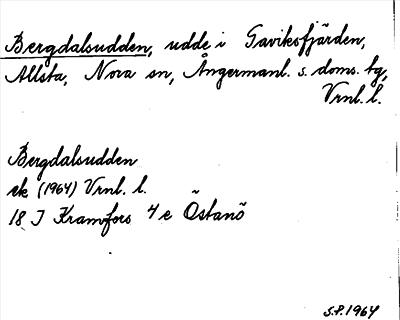 Bergdalsudden, udde i Gaviksfjärden,
Allsta, Nora sn, Ångermanl. s. doms. tg,
Vrnl. l.
Bergdalsudden
ek (1964) Vrnl. l.
18 I Kramfors 4 e Östanö
S.P. 1964